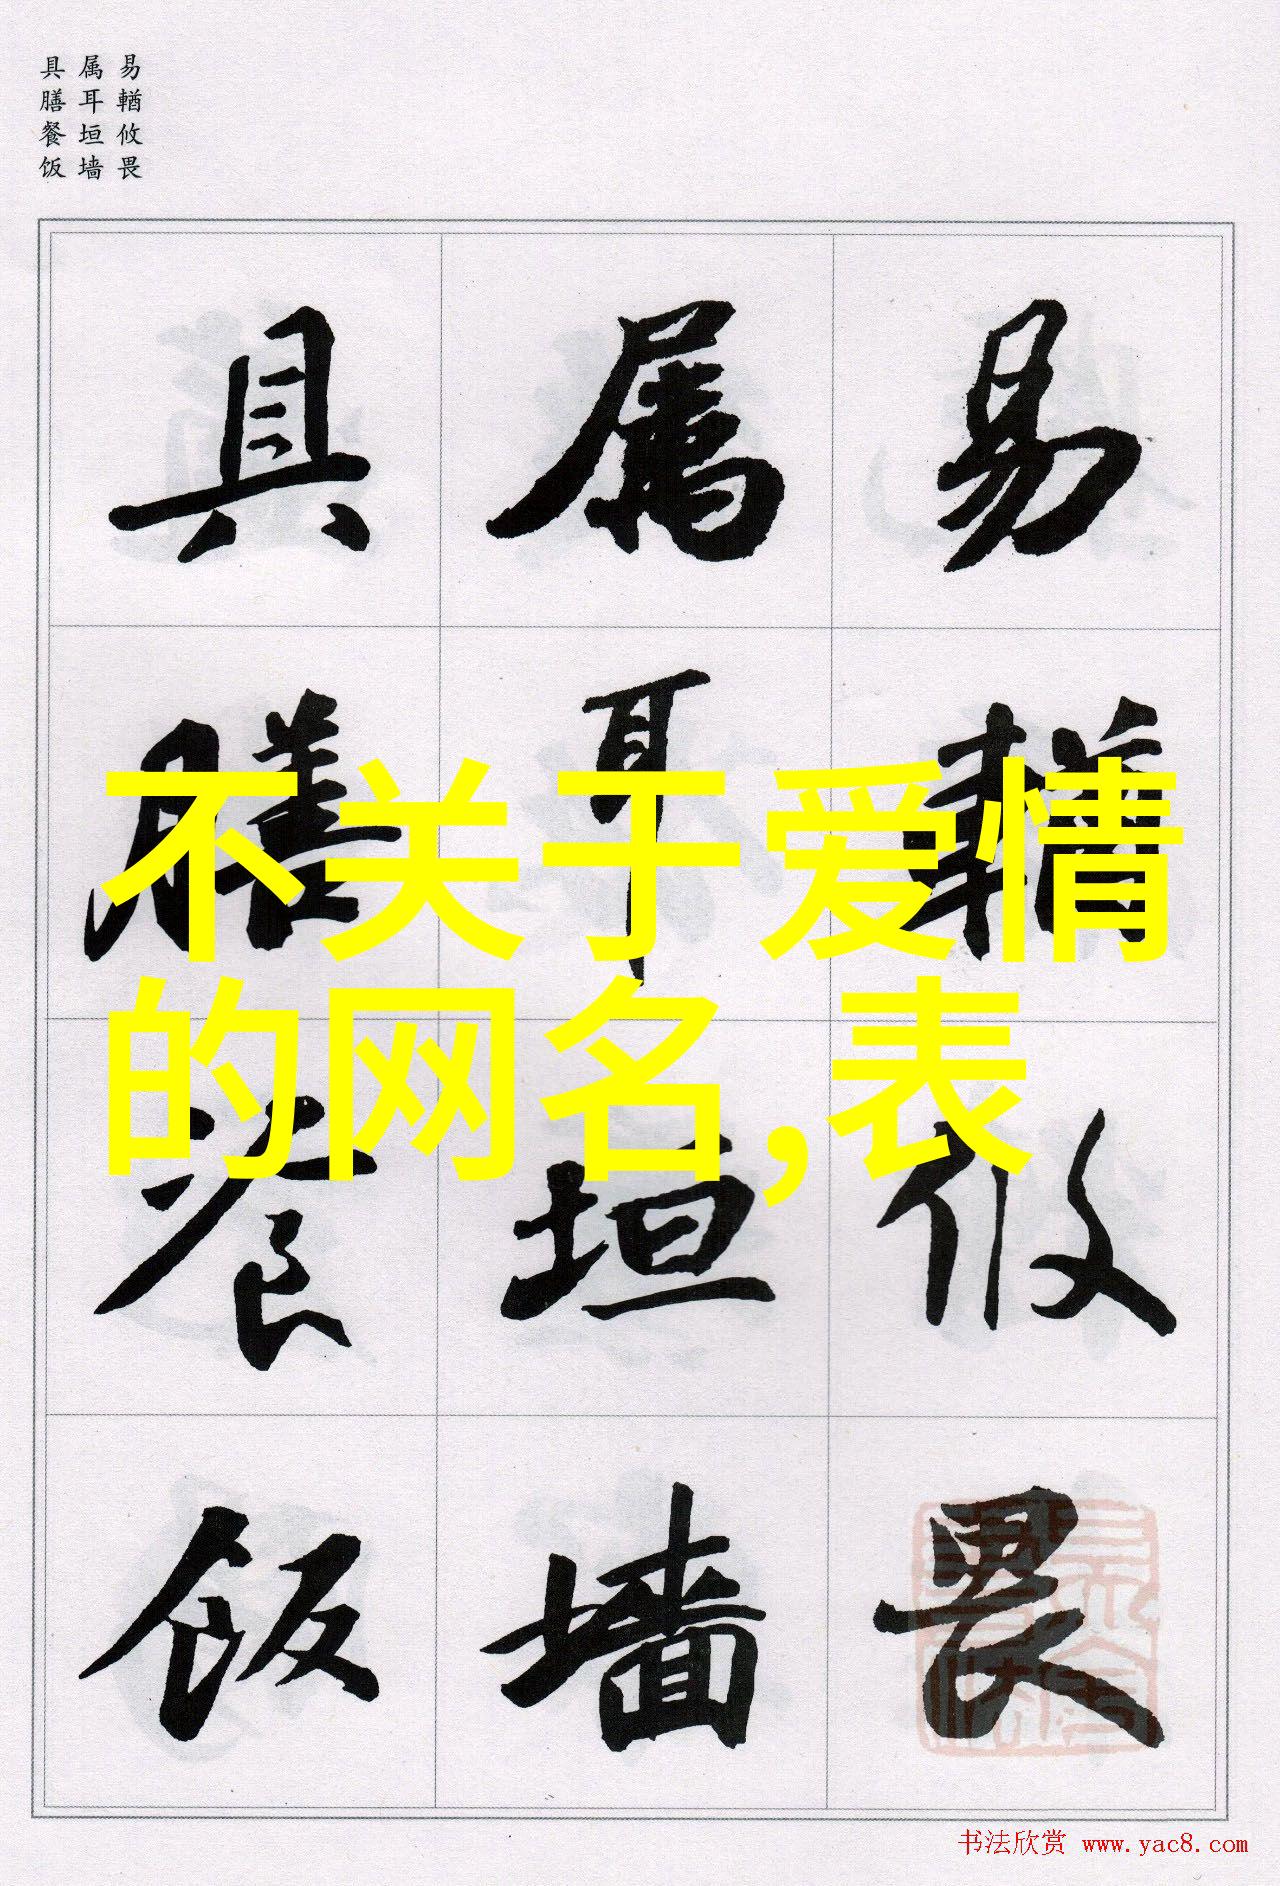 易輶攸畏
属耳垣墙
具膳餐饭
易 輶 攸 畏
属 耳 垣 墙
具 膳 餐 饭
不关于爱情
的网名,表
书法欣赏 www.yac8.com